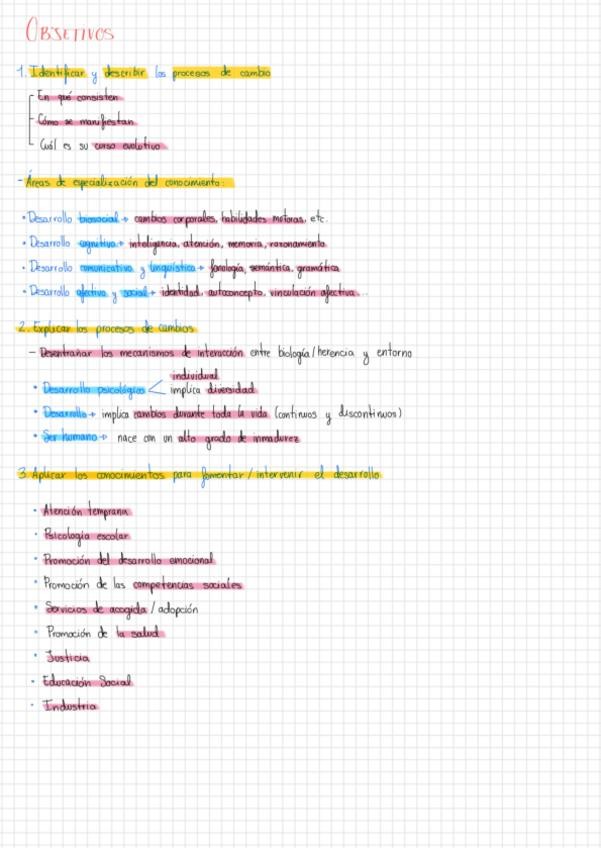 OBJETIVOS
1. Identificar y describir los procesos de cambio
En qué consisten
Cómo se manifiestan
Cuál es su curso evolutivo
- Áreas de especialización del conocimiento:
• Desarrollo biosocial → cambios corporales, habilidades motoras, etc.
• Desarrollo cognitivo → inteligencia, atención, memoria, razonamiento
• Desarrollo comunicativo y lingüística → fonología, semántica, gramática
• Desarrollo afectivo y social → identidad, autoconcepto, vinculación afectiva...
2. Explicar los procesos de cambios
- Desentrañar los mecanismos de interacción entre biología/herencia y entorno
individual
• Desarrollo psicológico < implica diversidad
• Desarrollo → implica cambios durante toda la vida (continuos y discontinuos)
• Ser humano → nace con un alto grado de inmadurez
3. Aplicar los conocimientos para fomentar/intervenir el desarrollo
• Atención temprana
• Psicología escolar
• Promoción del desarrollo emocional
• Promoción de las competencias sociales
• Servicios de acogida / adopción
• Promoción de la salud
• Justicia
• Educación Social
• Industria